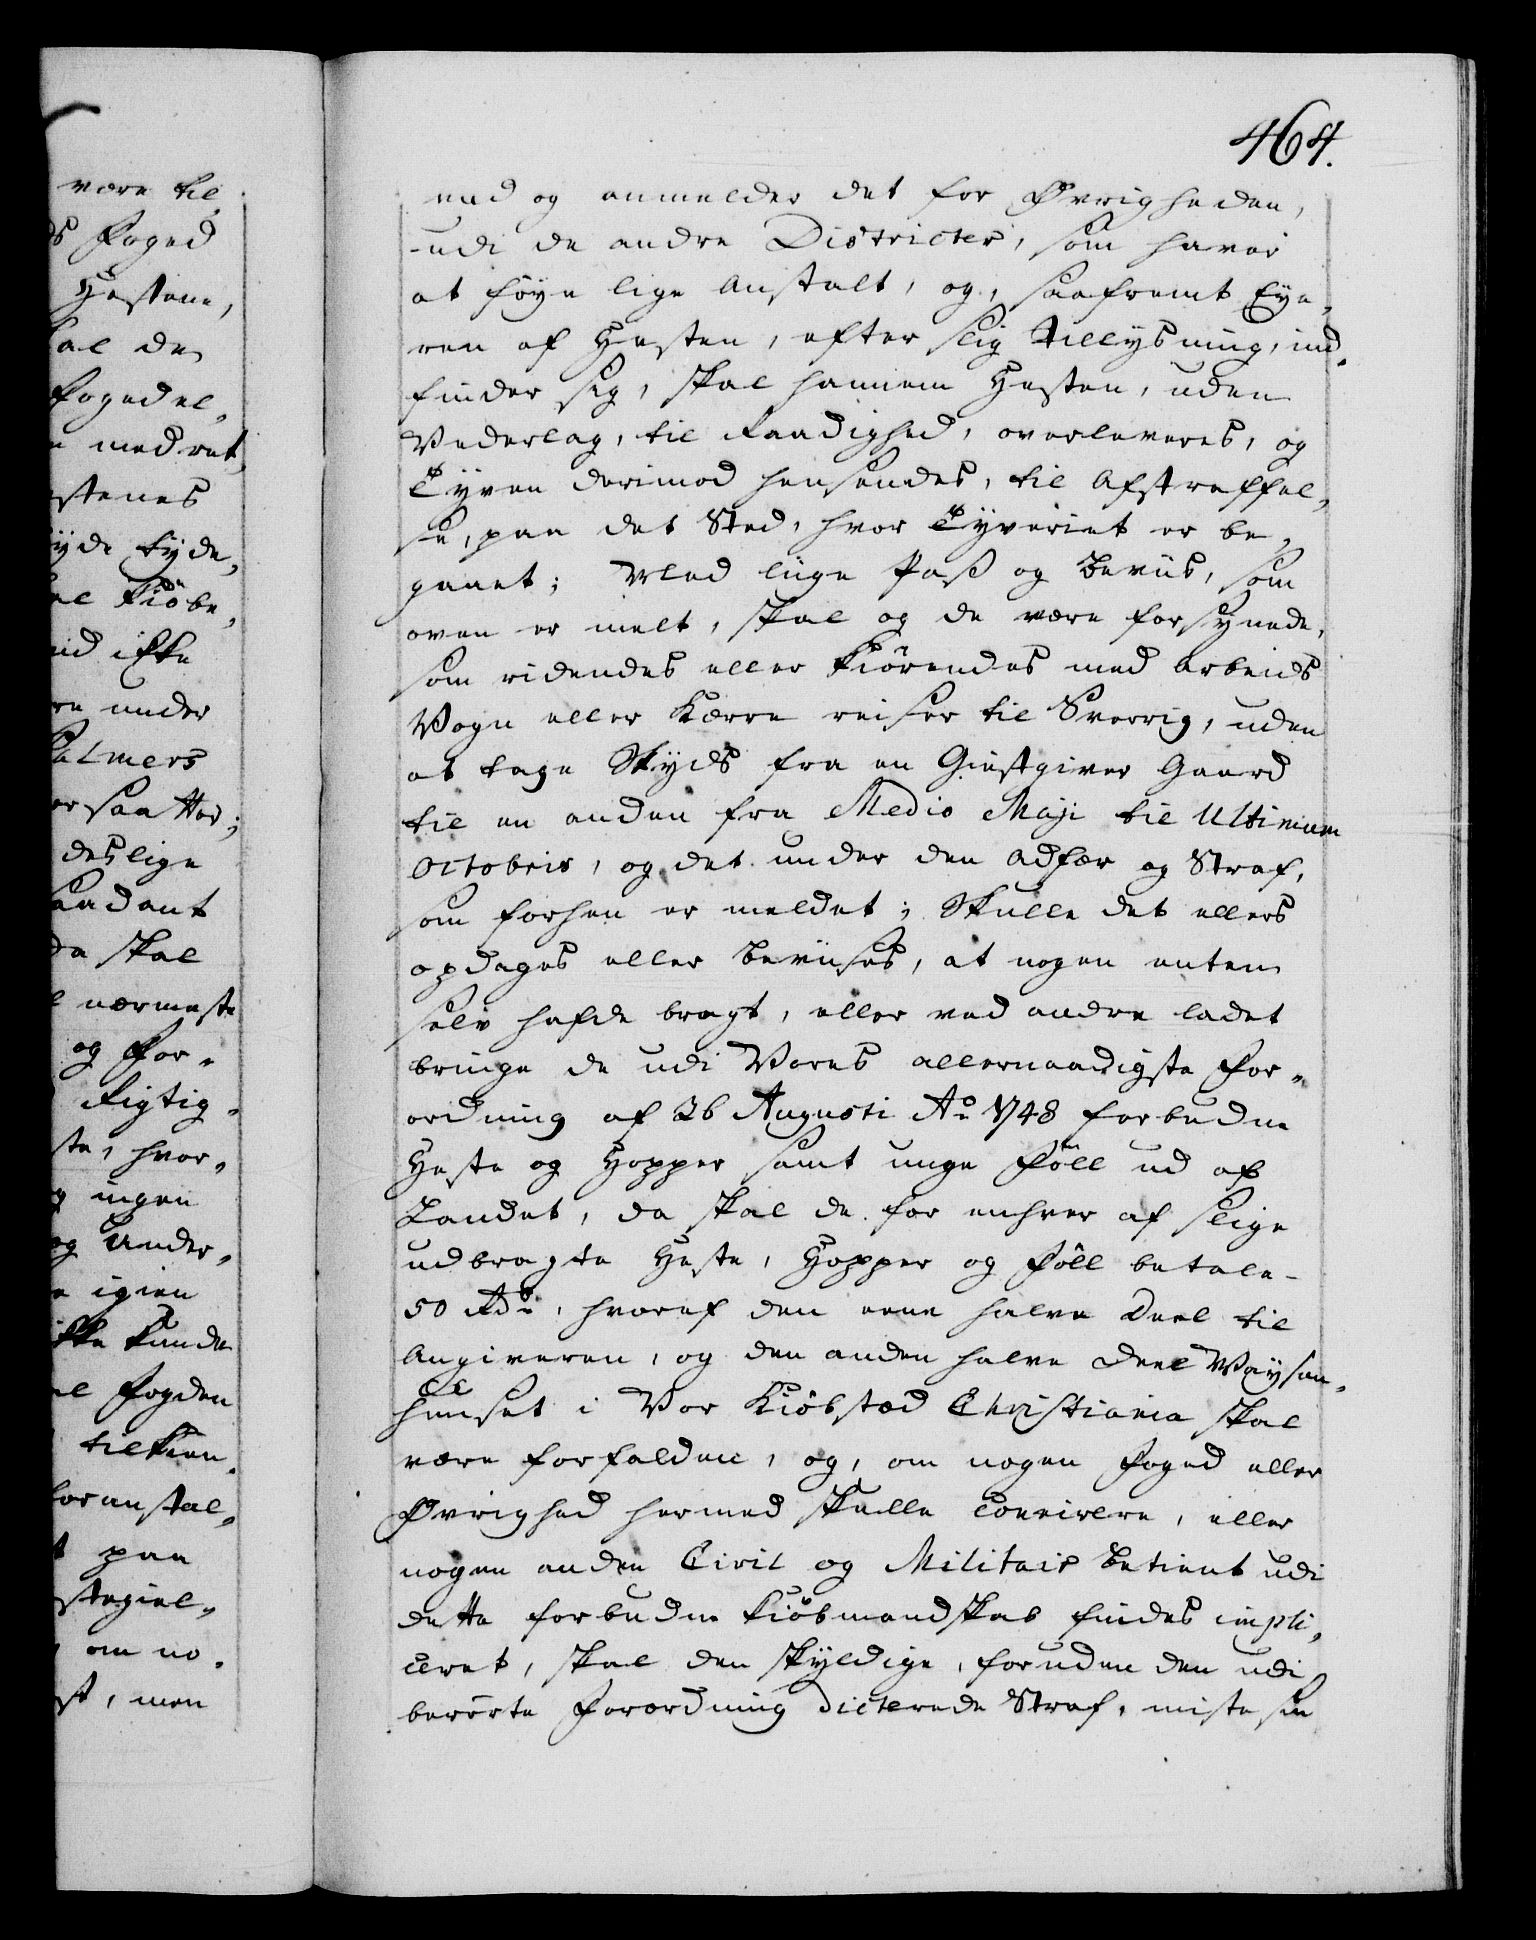 464.
være til,
ds Foged
Hestene,
al des
Fogedel,
med ret,
stenes
yde tyde,
el Kiöbe,
id ikke
re under
almers
er saa Hor,
deslige
aadant
da skal
nærmeste
og For,
Rigtig,
ste, hvor,
ingen
og Under,
e igien
ikke kunde
el Fogden
tilkien,
foranstal,
t paa
stegiel,
om no,
st, men
end og anmelder det for Øvrigheden,
udi de andre Districter, som haver
at föye lige Anstalt, og, saafremt Eye,
ren af Hesten, efter slig Tillysning, ind,
finder sig, skal hannem Hesten, uden
Vederlag, til Raadighed, overleveres, og
Tyven derimod hensendes, til Afstraffel,
se, paa det Sted, hvor Tyveriet er be,
gaaet; Med liige Pass og Beviis, som
oven er melt, skal og de være forsynede,
som ridendes eller kiörendes med Arbeids
Vogn eller Kærre reiser til Sverrig, uden
at tage Skyds fra en Giestgiver Gaard
til en anden fra Medio Maji til Ultimum
Octobris, og det under den Adfær og Straf,
som forhen er meldet; Skulle det ellers
opdages eller beviises, at nogen enten
selv hafde bragt, eller ved andre ladet
bringe de udi Vores allernaadigste For,
ordning af 26 Augusti Ao 1748 forbudne
Heste og Hopper samt unge Föll ud af
Landet, da skal de for enhver af slige
udbragte Heste, Hopper og Föll betale
50 Rdr, hvoraf den eene halve Deel til
Angiveren, og den anden halve Deel Waysen,
huuset i Vor Kiöbsted Christiania skal
være forfalden, og, om nogen Foged eller
Øvrighed hermed skulle connivere, eller
nogen anden Civil og Militair Betient udi
dette forbudne Kiöbmandskab findes impli,
ceret, skal den skyldige, foruden den udi
berörte Forordning dicterede Straf, miste sin